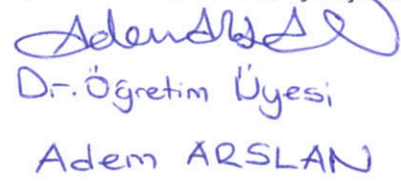 Dr. Öğretim Üyesi
Adem ARSLAN